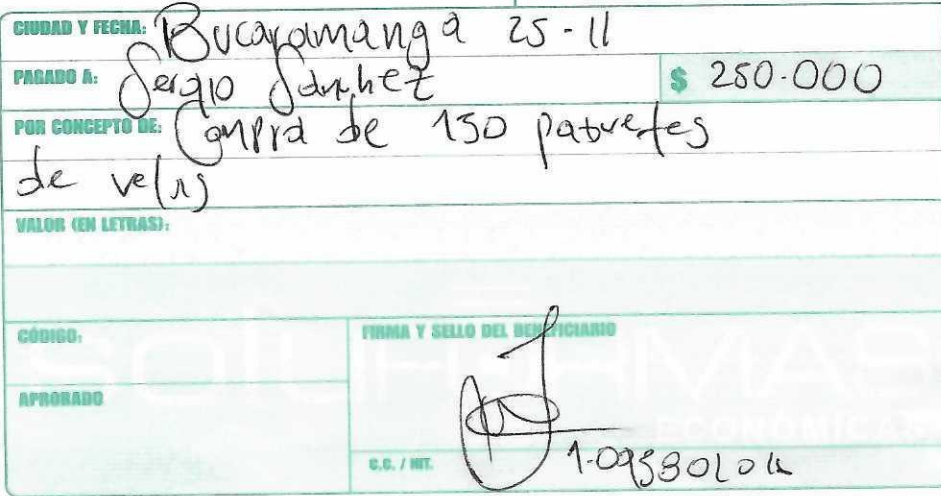 CIUDAD Y FECHA: Bucaramanga 25-11
PAGADO A: Sergio Sánchez $ 250.000
POR CONCEPTO DE: Compra de 150 paquetes
de velas
VALOR (EN LETRAS):
CÓDIGO:
FIRMA Y SELLO DEL BENEFICIARIO
APROBADO
ECONÓMICAS
C.C. / NIT.